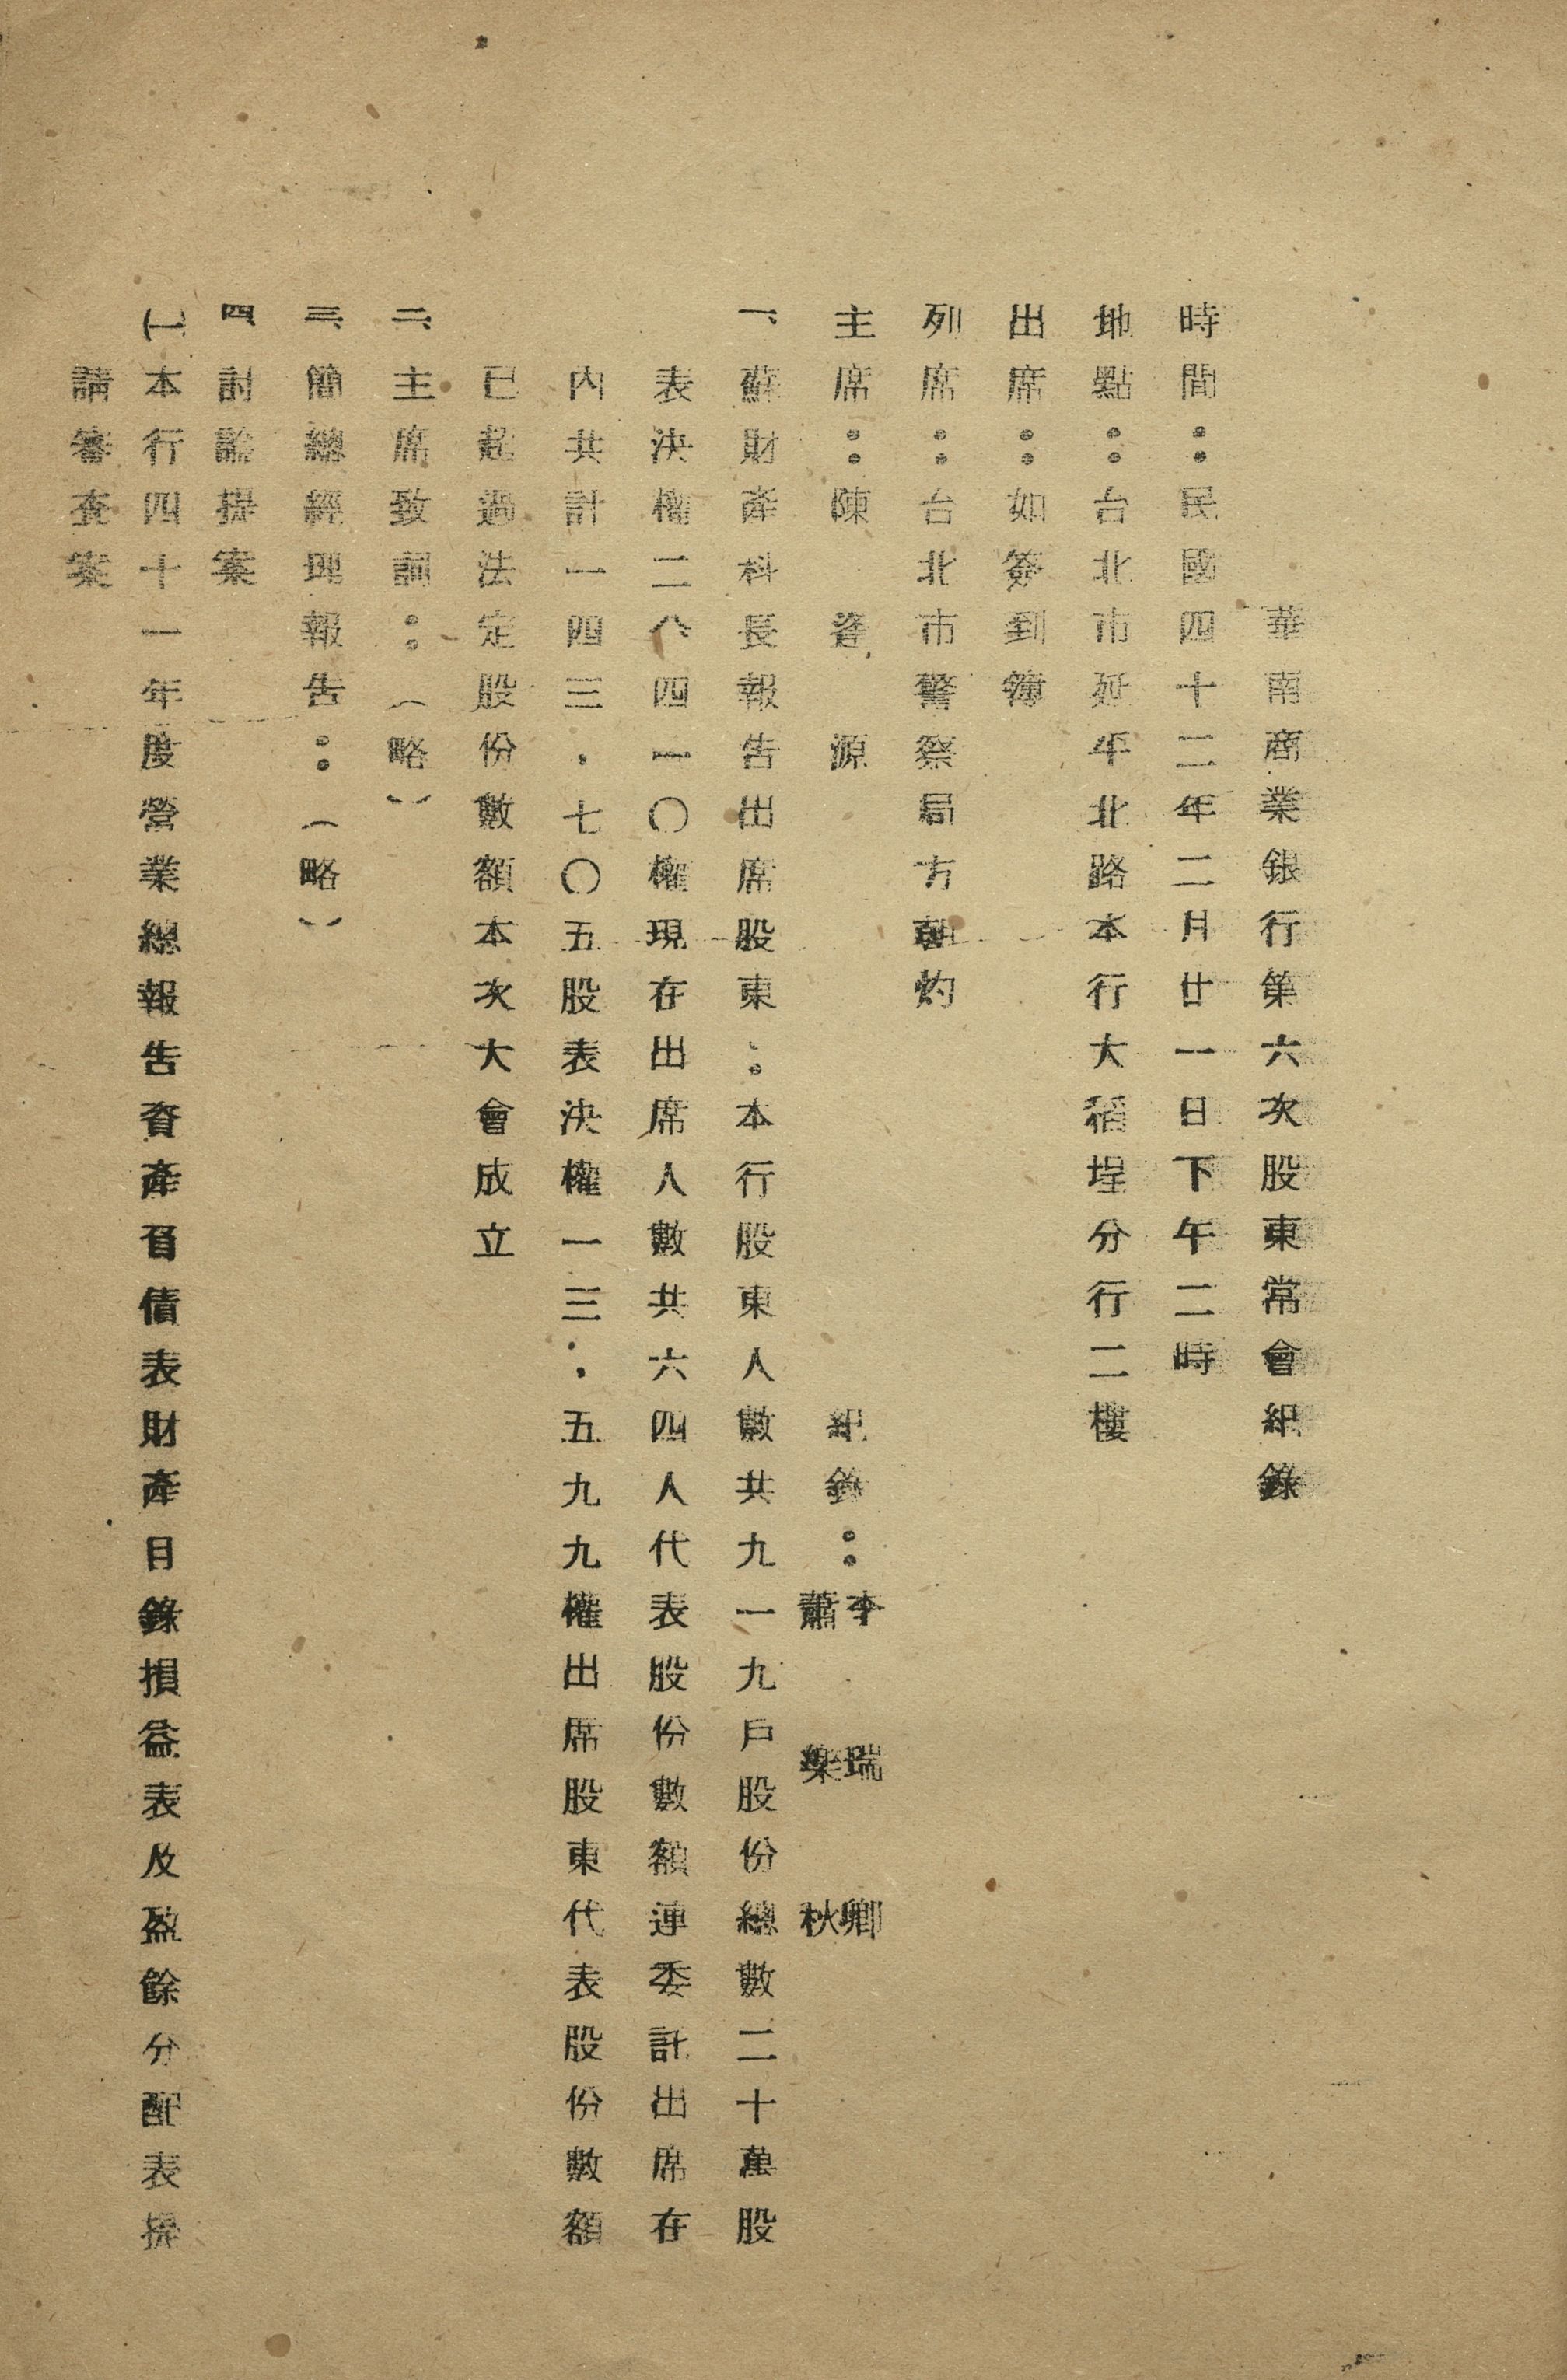 華南商業銀行第六次股東常會紀錄
時間：民國四十二年二月廿一日下午二時
地點：台北市延平北路本行大稻埕分行二樓
出席：如簽到簿
列席：台北市警察局方朝灼
主席：陳 逢 源 紀錄：李 瑞 卿
蕭 樂 秋
一、蘇財產科長報告出席股東：本行股東人數共九一九戶股份總數二十萬股
表決權二八四一〇權現在出席人數共六四人代表股份數額連委託出席在
內共計一四三．七〇五股表決權一三．五九九權出席股東代表股份數額
已超過法定股份數額本次大會成立
二、主席致詞：（略）
三、簡總經理報告：（略）
四、討論提案
(一)本行四十一年度營業總報告資產負債表財產目錄損益表及盈餘分配表提
請審查案